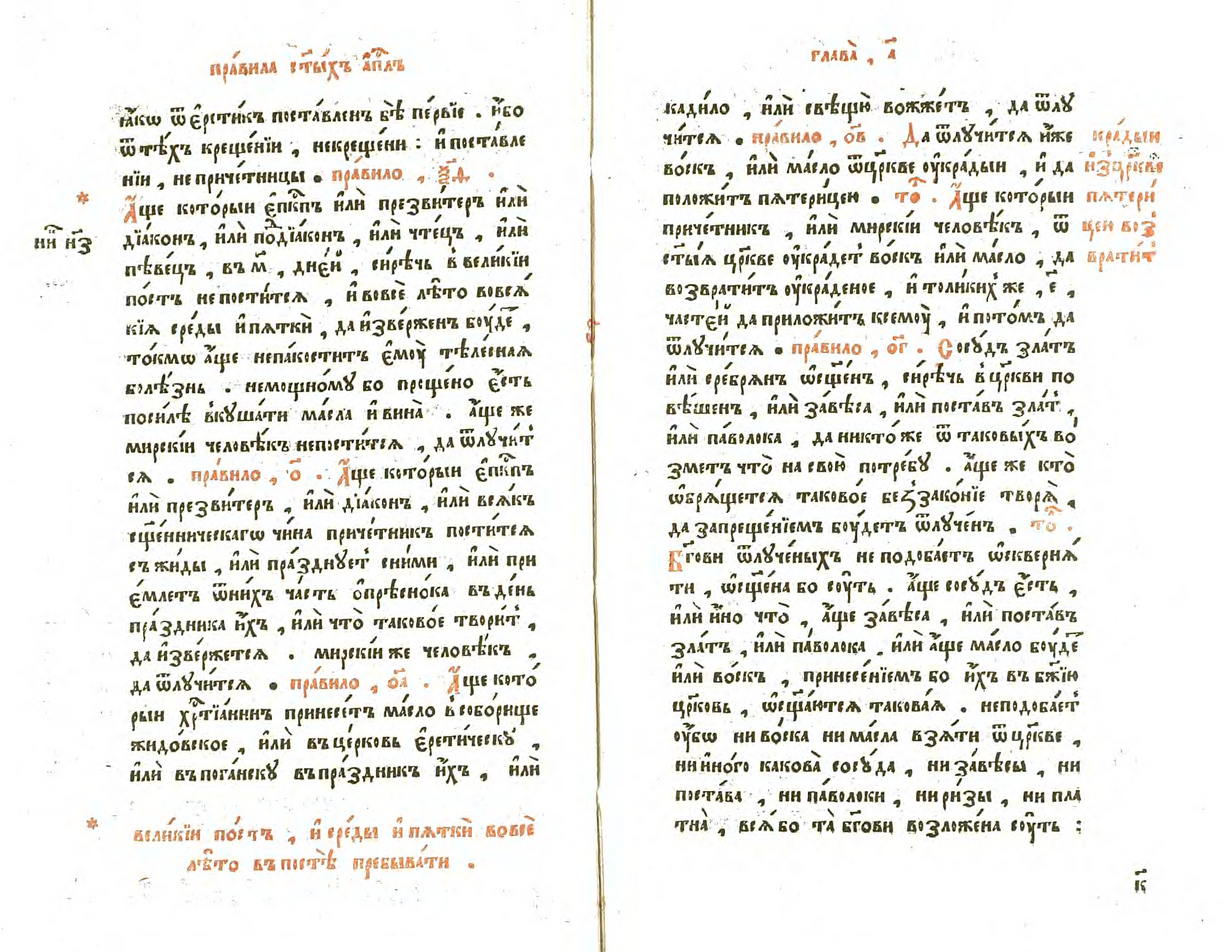 пра́вила ст҃ы́хъ а҆пл҃ъ
ꙗ҆́кѡ ѿ є҆рети́къ поста́вленъ бѣ̀ пе́рвїе . и҆́бо
ѿ тѣ́хъ креще́нїи , некреще́ни : и҆ поста́вле
нїи , не приче́тницы . пра́вило , ѯ҃ѳ .
* А҆́ще кото́рыи є҆пⷭ҇кпъ и҆лѝ презви́теръ и҆лѝ
ни и҆з
дїа́конъ , и҆лѝ по́дїа́конъ , и҆лѝ чте́цъ , и҆лѝ
пѣве́цъ , въ м҃ , дне́й , си́рѣчь в вели́кїи
по́стъ не пости́тся , и҆ во всѐ лѣ́то вовся́
кїя сре́ды и҆ пятки̂ , да и҆зве́рженъ бꙋ́де ,
то́кмѡ а҆́ще не па́коститъ є҆мꙋ̀ тѣле́сная
болѣ́знь . немощно́мꙋ бо проще́но є҆́сть
по си́лѣ вкꙋша́ти ма́сла и҆ вина̀ . а҆́ще же
мирскі́и человѣ́къ не пости́тся , да ѿлꙋчи́т
ся . пра́вило , о҃ . А҆́ще кото́рыи є҆пⷭ҇кпъ
и҆лѝ презви́теръ , и҆лѝ дїа́конъ , и҆лѝ вся́къ
сщ҃е́нническагѡ чи́на приче́тникъ пости́тся
съ жиды̀ , и҆лѝ пра́зднꙋетъ с ни́ми , и҆лѝ при
є҆́млетъ ѿ ни́хъ ча́сть о҆прѣсно́ка въ де́нь
пра́здника и҆́хъ , и҆лѝ что̀ таково́е твори́т ,
да и҆зве́ржется . мирскі́и же человѣ́къ ,
да ѿлꙋчи́тся . пра́вило , о҃а . А҆́ще кото
рыи хрⷭ҇тїа́нинъ принесе́тъ ма́сло в собо́рище
жидо́вское , и҆лѝ въ це́рковь є҆рети́ческꙋ ,
и҆лѝ въ пога́нскꙋ въ пра́здникъ и҆́хъ , и҆лѝ
* вели́кїи по́стъ , и҆ сре́ды и҆ пятки̂ во всѐ
лѣ́то въ постѣ̀ пребыва́ти .
глава̀ , а҃
кади́ло , и҆лѝ свѣщю̀ вожже́тъ , да ѿлꙋ
чи́тся . пра́вило , о҃в . Да ѿлꙋчи́тся и҆́же
во́скъ , и҆лѝ ма́сло ѿ цр҃кве ᲂу҆кра́дыи , и҆ да
положи́тъ пятери́цею . то̂ . А҆́ще кото́рыи
приче́тникъ , и҆лѝ мирскі́и человѣ́къ , ѿ
ст҃ы́я цр҃кве ᲂу҆краде́тъ во́скъ и҆лѝ ма́сло , да
возврати́тъ ᲂу҆кра́деное , и҆ толи́кихъ же , є҃ ,
часте́й да приложи́тъ к семꙋ̀ , и҆ пото́мъ да
ѿлꙋчи́тся . пра́вило , о҃г . Сосꙋ́дъ зла́тъ
и҆лѝ сре́брянъ ѡ҆сщ҃е́нъ , си́рѣчь в цр҃кви по
вѣ́шенъ , и҆лѝ завѣ́са , и҆лѝ поста́въ зла́т ,
и҆лѝ па́волока , да никто́ же ѿ таковы́хъ во́
зметъ что̀ на свою̀ потре́бꙋ . а҆́ще же кто̀
ѡ҆бря́щется таково́е беззако́нїе творя̀ ,
да запреще́нїемъ бꙋ́детъ ѿлꙋче́нъ . то̂ .
Бг҃ови ѿлꙋче́ныхъ не подоба́етъ ѡ҆скверня́
ти , ѡ҆сщ҃е́на бо сꙋ́ть . а҆́ще сосꙋ́дъ є҆́сть ,
и҆лѝ и҆́но что̀ , а҆́ще завѣ́са , и҆лѝ поста́въ
зла́тъ , и҆лѝ па́волока , и҆лѝ а҆́ще ма́сло бꙋ́де
и҆лѝ во́скъ , принесе́нїемъ бо и҆́хъ въ бж҃їю
цр҃ковь , ѡ҆сщ҃а́ются такова́я . не подоба́етъ
ᲂу҆́бѡ ни во́ска ни ма́сла взя́ти ѿ цр҃кве ,
ни и҆но́го какова̀ сосꙋ́да , ни завѣ́сы , ни
поста́ва , ни па́волоки , ни ри́зы , ни пла
тна̀ , вся́ бо та̀ бг҃ови возложе́на сꙋ́ть :
кра́дыи
и҆з цр҃кве
пятери́
цею воз
врати́т
к҃